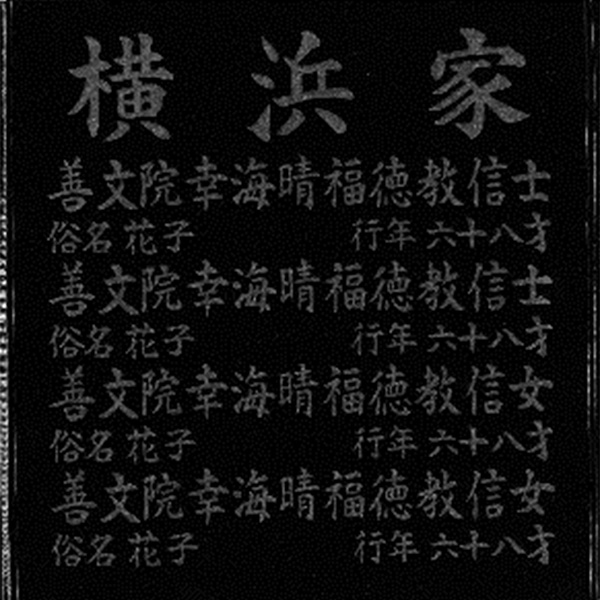 横浜家
善文院幸海晴福徳教信士
俗名 花子 行年 六十八才
善文院幸海晴福徳教信士
俗名 花子 行年 六十八才
善文院幸海晴福徳教信女
俗名 花子 行年 六十八才
善文院幸海晴福徳教信女
俗名 花子 行年 六十八才